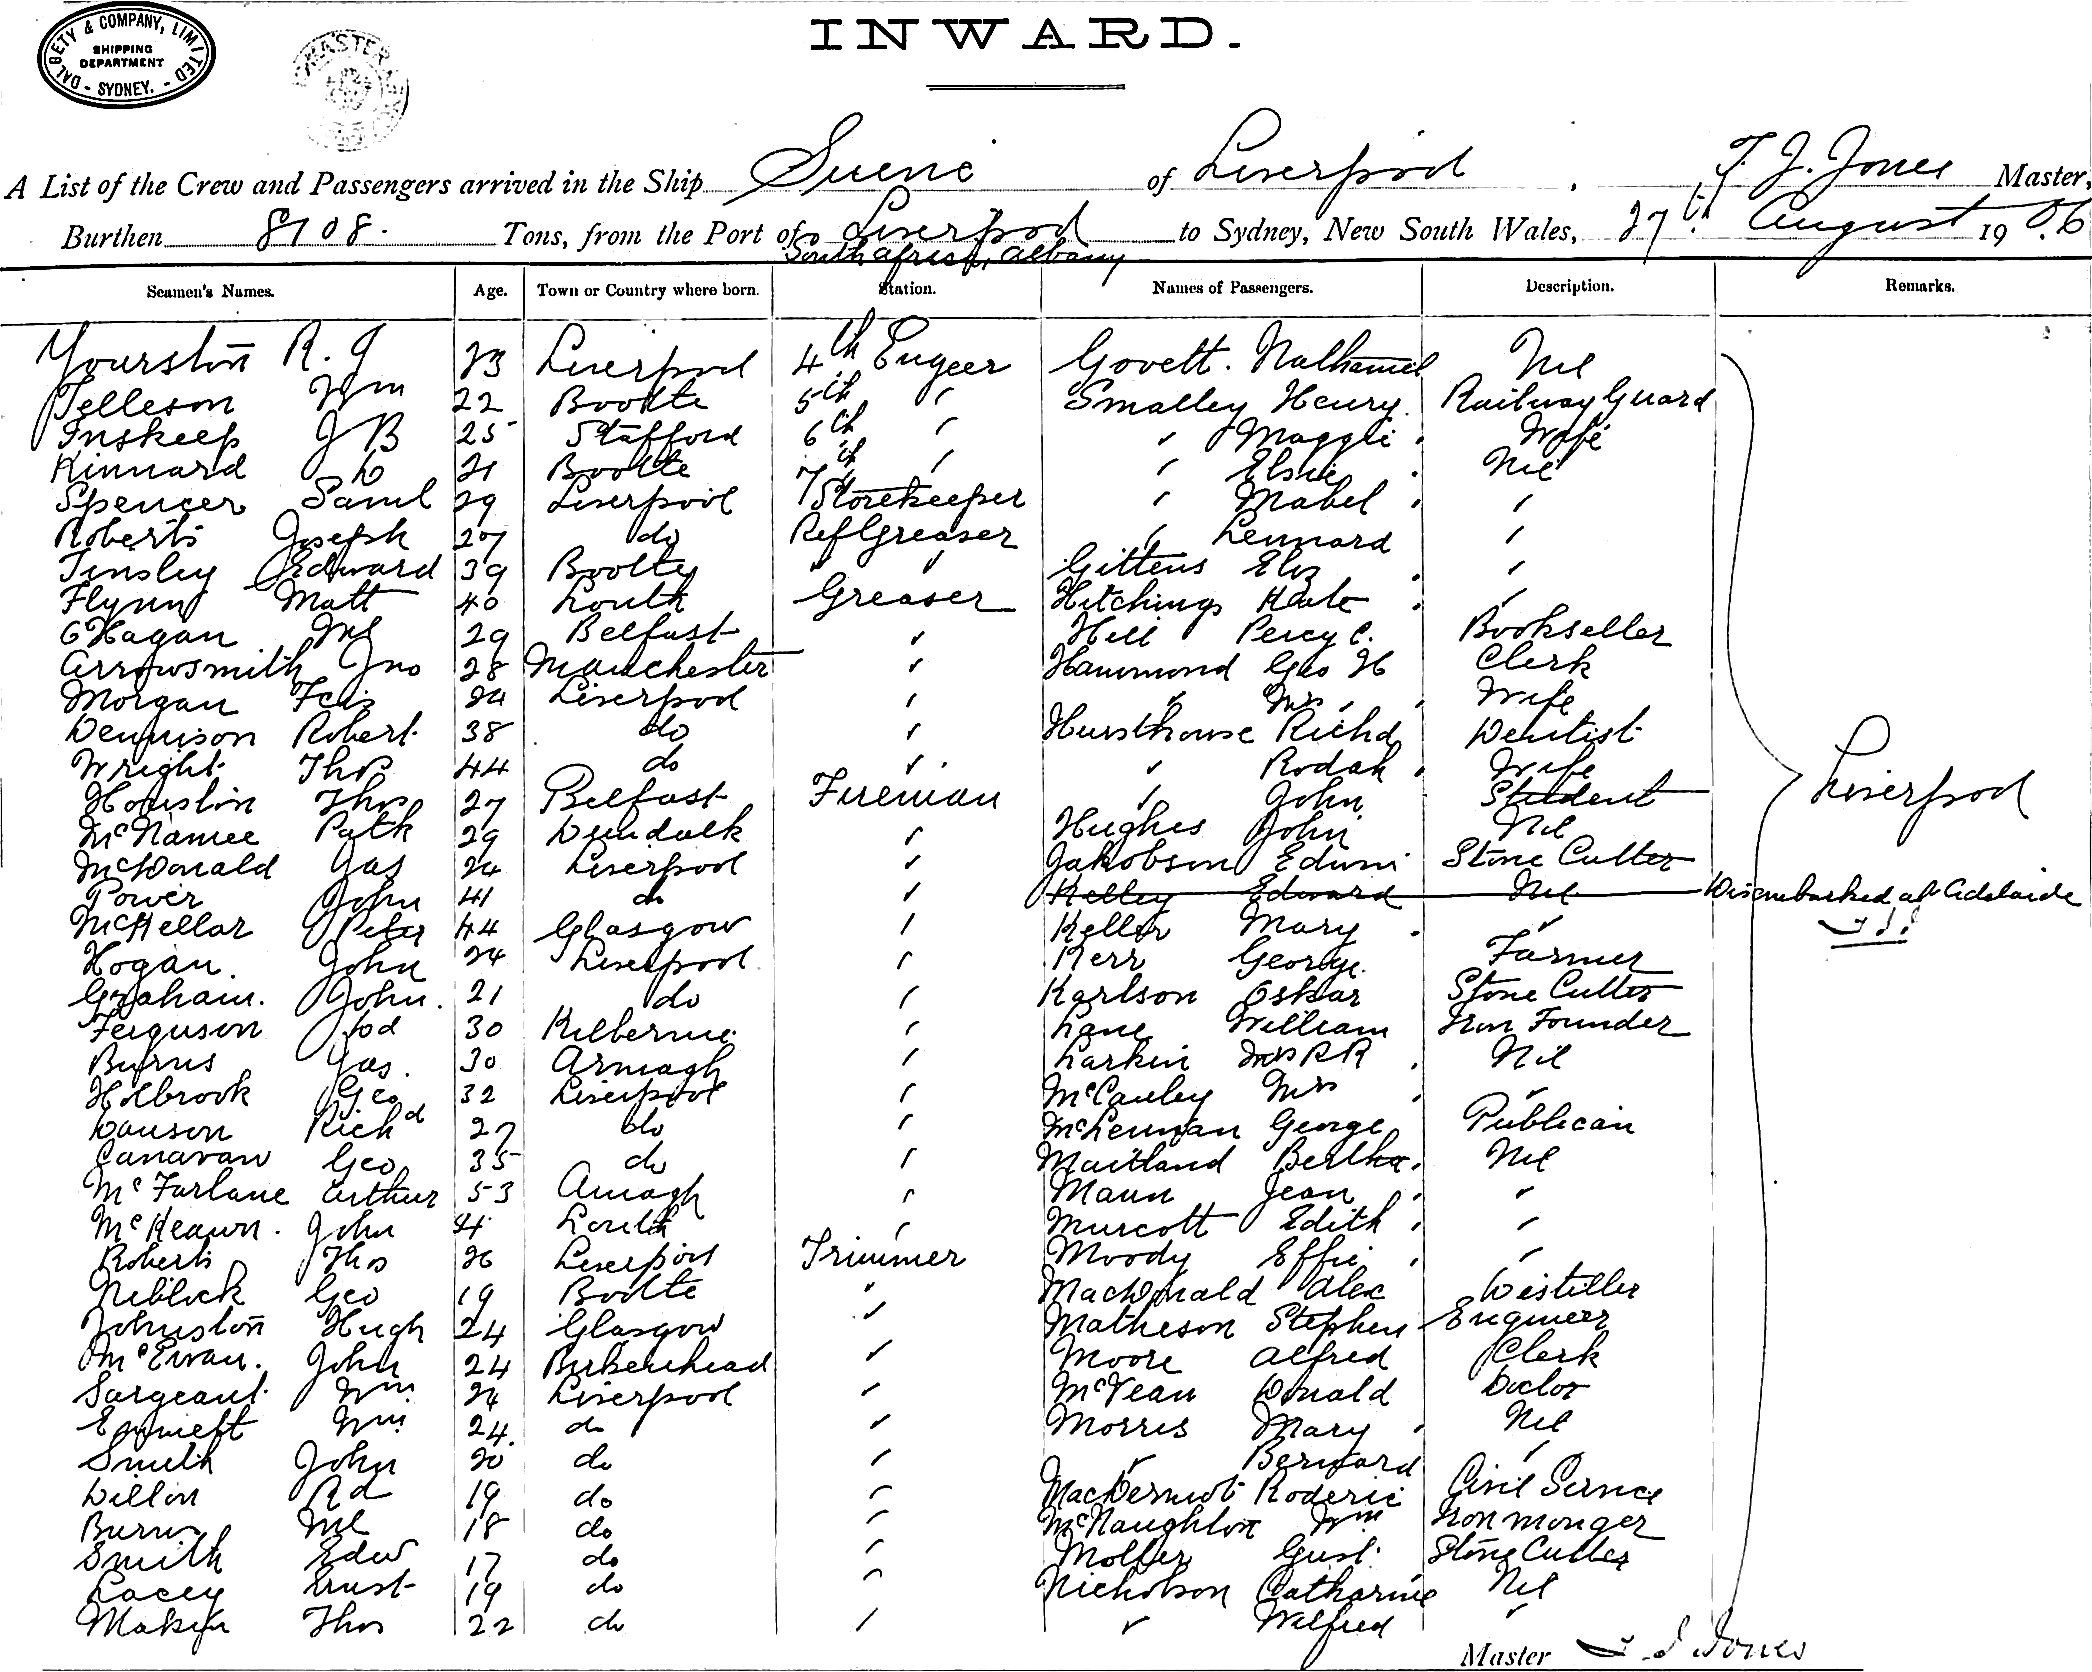 DALGETY & COMPANY, LIMITED
SHIPPING
DEPARTMENT
- SYDNEY. -
INWARD.
A List of the Crew and Passengers arrived in the Ship Suevic of Liverpool, T. J. Jones Master,
Burthen 8108. Tons, from the Port of Liverpool to Sydney, New South Wales, 27th August 1906
South Africa, Albany
Seamen's Names. Age. Town or Country where born. Station. Names of Passengers. Description. Remarks.
Yourston R. J 23 Liverpool 4th Engeer Govett. Nathaniel Nil
Telleson Wm 22 Bootle 5th " Smalley Henry. Railway Guard
Inskeep J B 25 Stafford 6th " " Maggie Wife
Kinnard D 21 Bootle 7th " " Elsie Nil
Spencer Saml 29 Liverpool Storekeeper " Mabel "
Roberts Joseph 27 do Refl Greaser " Lennard "
Tinsley Edward 39 Bootle " Gittens Eliz "
Flynn Matt 40 Louth Greaser Hitchings Kate "
O'Hagan Ml 29 Belfast " Hill Percy C. Bookseller
Arrowsmith Jno 28 Manchester " Hammond Geo H Clerk
Morgan Fcis 24 Liverpool " " Mrs Wife
Dennison Robert 38 do " Hursthouse Richd Dentist
Wright Thos 44 do " " Rodah Wife
Houston Thos 27 Belfast Fireman " John Student
McNamee Patk 29 Dundalk " Hughes John Nil
McDonald Jas 24 Liverpool " Jakobson Edwin Stone Cutter Liverpool
Power John 41 do " Kelley Edward Nil Disembarked at Adelaide
McKellar Peter 44 Glasgow " Keller Mary " TJJ
Hogan. John 24 Liverpool " Kerr George. Farmer
Graham. John. 21 do " Karlson Oskar Stone Cutter
Ferguson Jos 30 Kilbernie " Lane William Iron Founder
Burns Jas. 30 Armagh " Larkin Mrs R R Nil
Holbrook Geo 32 Liverpool " McCauley Mrs "
Dawson Richd 27 do " McLennan George Publican
Canavan Geo 35 do " Maitland Bertha. Nil
McFarlane Arthur 53 Amagh " Mann Jean "
McKeown. John 41 Louth " Murcott Edith "
Roberts Thos 26 Liverpool Trimmer Moody Effie "
Niblock Geo 19 Bootle " MacDonald Alex Distiller
Johnston Hugh 24 Glasgow " Matheson Stephen Engineer
McEwan. John 24 Birkenhead " Moore Alfred Clerk
Sargeant Wm 24 Liverpool " McVean Donald Doctor
Emmett Wm 24. do " Morris Mary Nil
Smith John 20 do " " Bernard "
Dillon Rd 19 do " MacDermot Roderic Civil Service
Burns Ml 18 do " McNaughton Wm Iron monger
Smith Edw 17 do " Moller Gust. Stone Cutter
Lacey Ernst 19 do " Nicholson Catharine Nil
Makin Thos 22 do " " Wilfred "
Master T J Jones